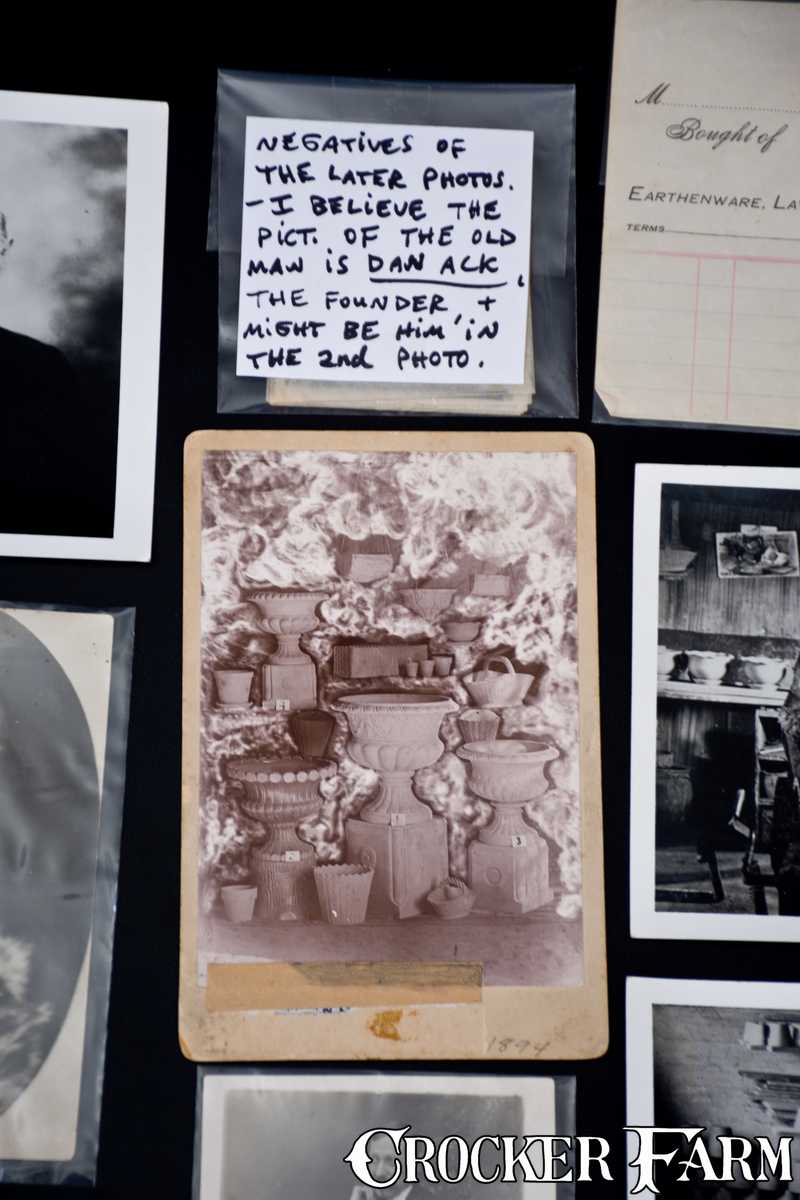 NEGATIVES OF
THE LATER PHOTOS.
- I BELIEVE THE
PICT. OF THE OLD
MAN IS DAN ACK,
THE FOUNDER, +
MIGHT BE HIM IN
THE 2nd PHOTO.
M
Bought of
EARTHENWARE, LA
TERMS
2
1
3
1894
CROCKER FARM